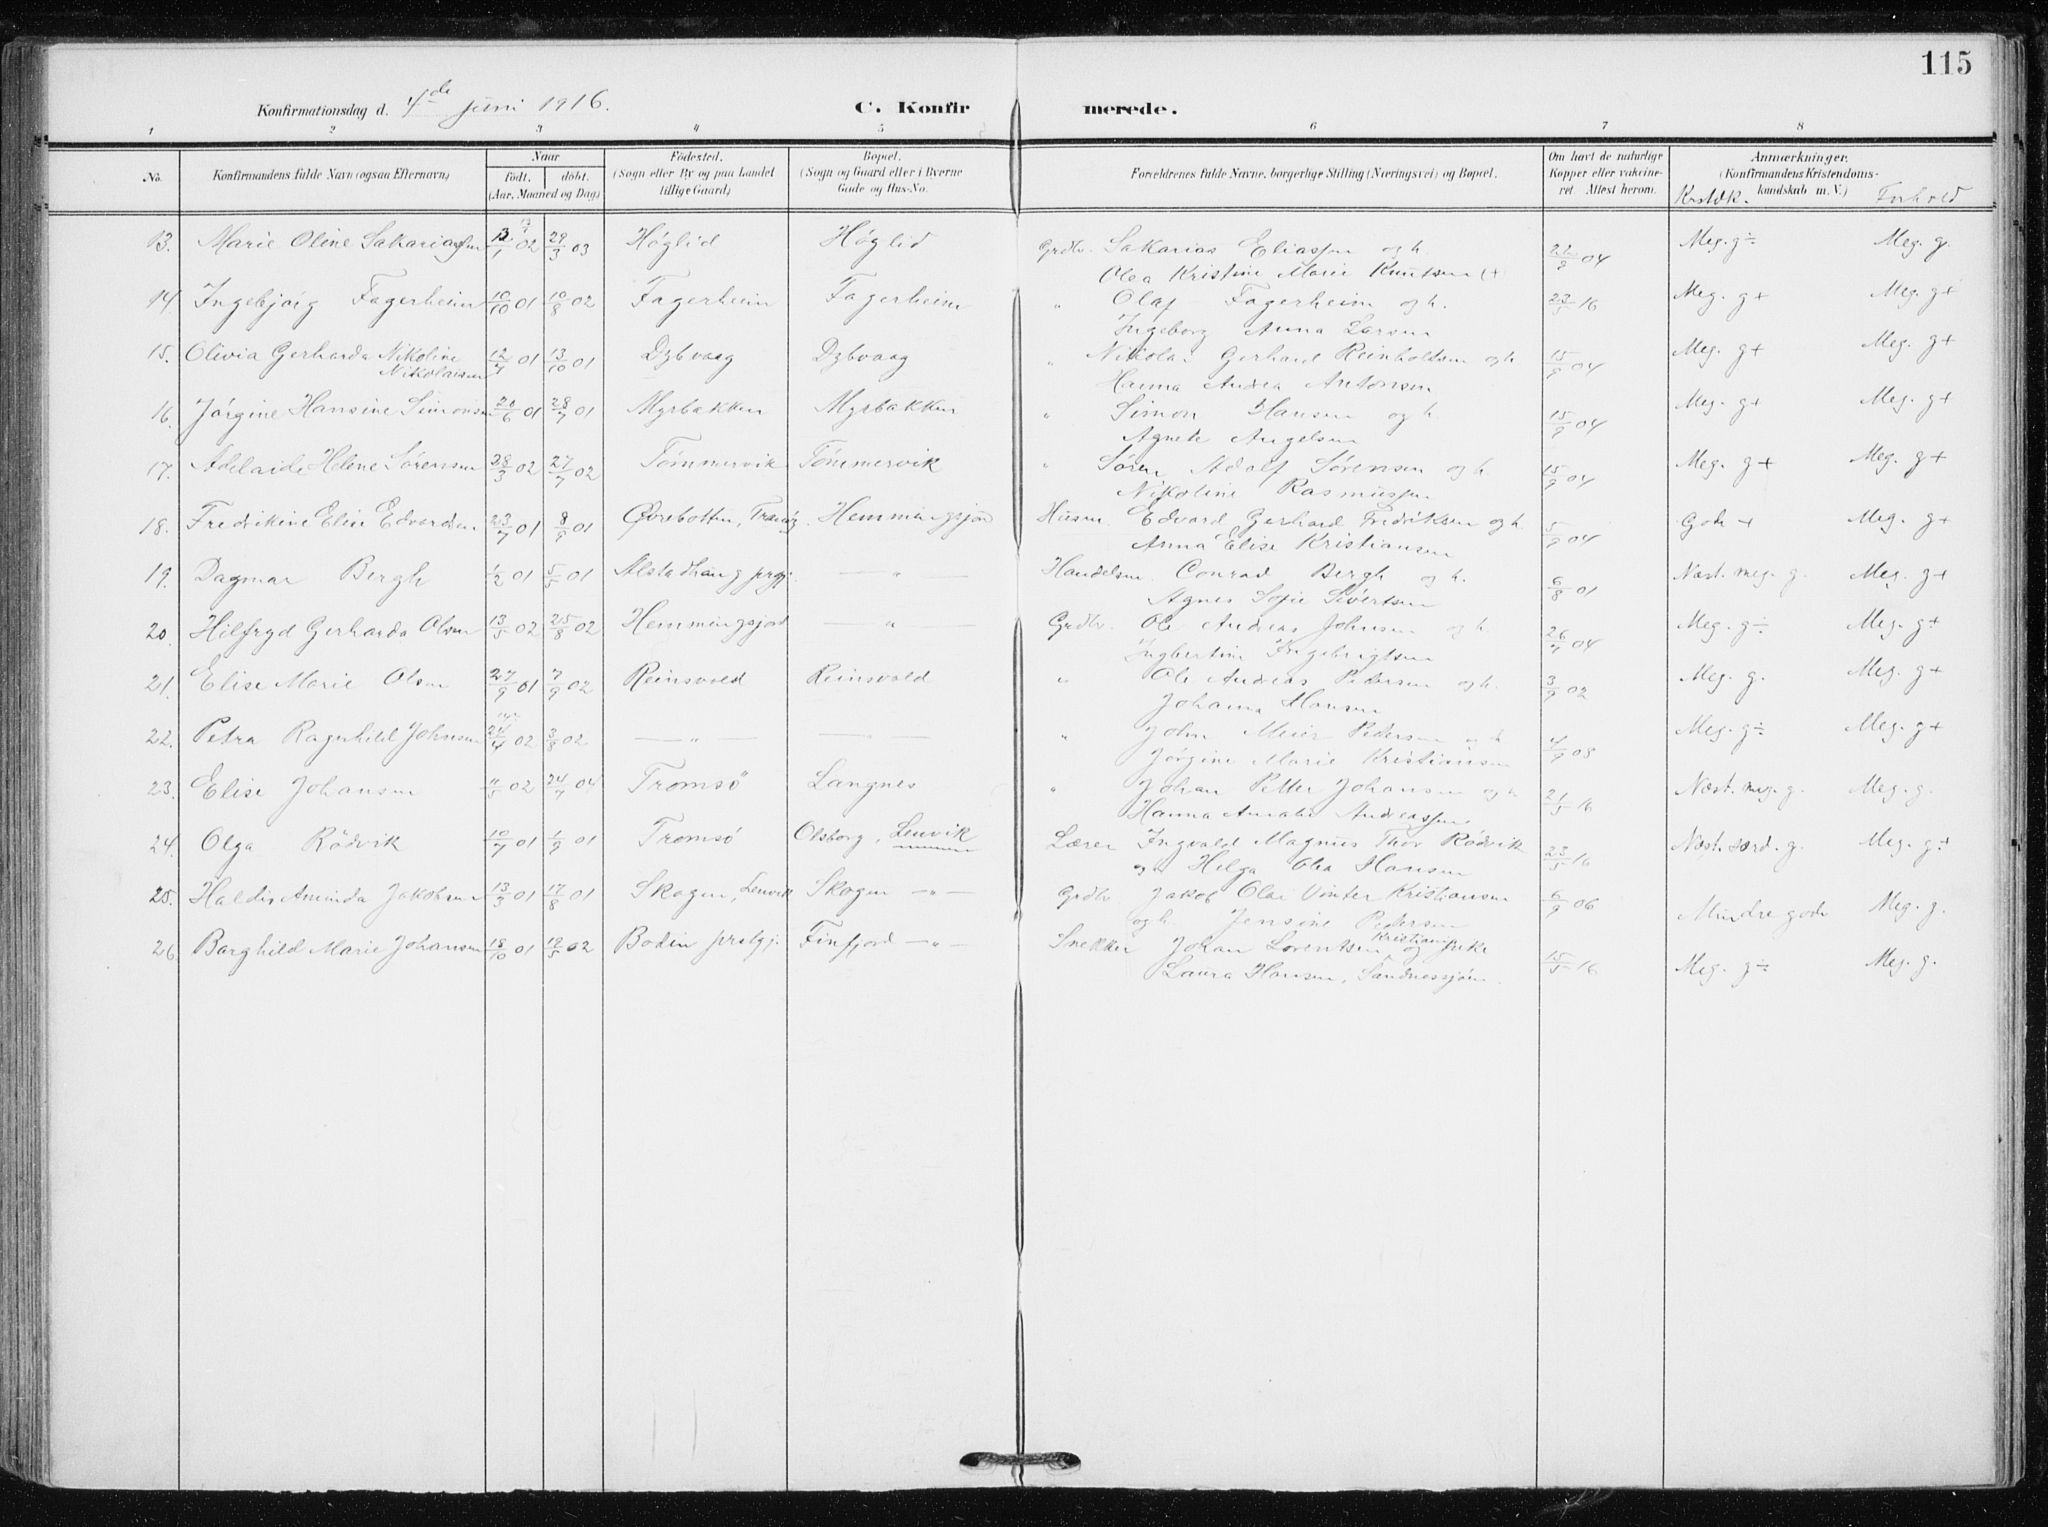 115
Konfirmationsdag d. 4de juni 1916. C. Konfir merede.
1 2 3 4 5 6 7 8
No. Konfirmandens fulde Navn (ogsaa Efternavn) Naar født. døbt. (Aar, Maaned og Dag) Fødested. (Sogn eller By og paa Landet tillige Gaard) Bopæl. (Sogn og Gaard eller i Byerne Gade og Hus-No. Forældrenes fulde Navne, borgerlige Stilling (Næringsvei) og Bopæl. Om havt de naturlige Kopper eller vakcineret. Attest herom. Anmærkninger. (Konfirmandens Kristendomskundskab m. V.) Krstdk. Forhold
13. Marie Oline Sakariassen 02 29/3 03 Høglid Høglid Grdbr. Sakarias Eliassen og h. 22/9 04 Meg. g÷ Meg. g.
Olea Kristine Marie Knutsen (+
14 Ingebjørg Fagerheim 10/10 01 10/8 02 Fagerheim Fagerheim " Olaf Fagerheim og h. 23/5 16 Meg. g+ Meg. g+
Ingeborg Anna Larsen
15. Olivia Gerharda Nikoline Nikolaisen 12/7 01 13/10 01 Dybvaag Dybvaag " Nikolai Gerhard Reinholdtsen og h 15/9 04 Meg. g+ Meg. g+
Hanna Andrea Antonsen
16. Jørgine Hansine Simonsen 20/6 01 28/7 01 Myrbakken Myrbakken " Simon Hansen og h. 15/9 04 Meg. g+ Meg. g+
Agnete Angelsen
17. Adelaide Helene Sørensen 28/3 02 27/7 02 Tømmervik Tømmervik " Søren Adolf Sørensen og h. 15/9 04 Meg. g+ Meg. g+
Nikoline Rasmussen
18. Fredrikine Elise Edvardsen 23/7 01 8/9 01 Øvrebotten, Tranøy Hemmingsjord Husm. Edvard Gerhard Fredriksen og h. 5/9 04 Godt + Meg. g+
Anna Elise Kristiansen
19. Dagmar Bergh 1/2 01 5/5 01 Alstadhaug prgj. — " — Handelsm. Conrad Bergh og h. 6/8 01 Næst. meg. g. Meg. g+
Agnes Sofie Sivertsen
20. Hilfryd Gerharda Olsen 13/5 02 25/8 02 Hemmingsjord — " — Grdbr. Ole Andreas Johnsen og h. 26/7 04 Meg. g÷ Meg. g+
Ingbertine Ingebrigtsen
21. Elise Marie Olsen 27/9 01 7/9 02 Reinsvold Reinsvold " Ole Andreas Pedersen og h. 3/9 02 Meg. g. Meg. g+
Johanna Hansen
22. Petra Ragnhild Johnsen 24/4 02 3/8 02 — " — — " — " John Meier Pedersen og h 4/9 08 Meg. g÷ Meg. g+
Jørgine Marie Kristiansen
23. Elise Johansen 11/5 02 24/7 04 Tromsø Langnes " Johan Petter Johansen og h 21/5 16 Næst. meg. g. Meg. g.
Hanna Amalie Andreassen
24. Olga Rødvik 10/7 01 1/9 01 Tromsø Olsborg, Lenvik Lærer Ingvald Magnus Thor Rødvik 23/5 16 Næst. særd. g. Meg. g+
og h Helga Olea Hansen
25. Haldis Aminda Jakobsen 13/3 01 17/8 01 Skogen, Lenvik Skogen — " — Grdbr. Jakob Olai Vinter Kristiansen 6/9 06 Mindre godt Meg. g.
og h. Jensine Pedersen
26 Borghild Marie Johansen 18/10 01 12/5 02 Bodin prstgj. Finfjord — " — Snekker Johan Lorentsen og pike Kristiane 15/5 16 Meg. g÷ Meg. g.
Laura Hansen, Sandnessjøen.